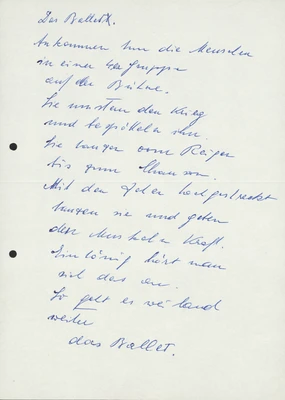 Das Ballett.
Ankommen tun die Menschen
in einer 4er Gruppe
auf der Bühne.
Sie den Krieg
und bespötteln ihn.
Sie tanzen vom Reigen
bis zum
Mit den hochgestreckt
tanzen sie und geben
den Muskeln Kraft.
Eintönig hört man
sich das an.
So geht es
weiter
das Ballet.